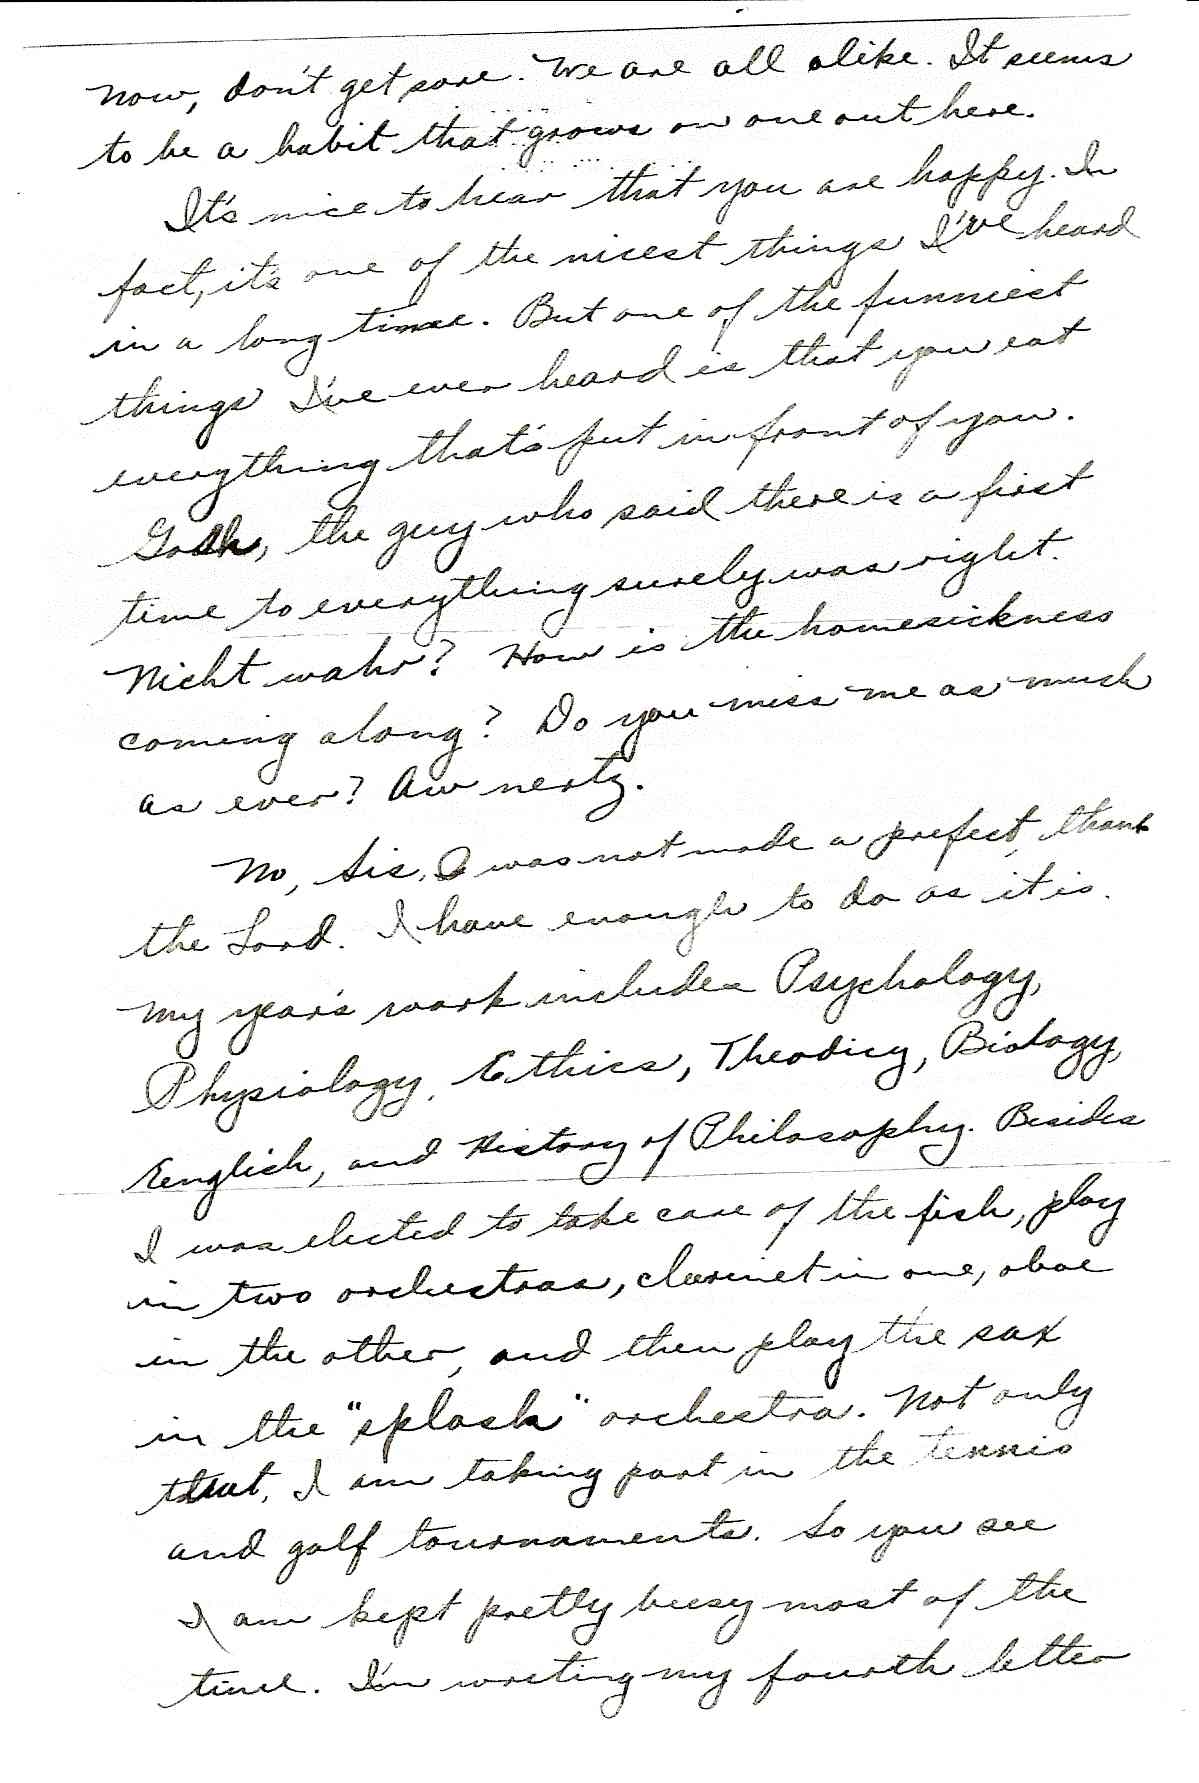 Now, don't get sore. We are all alike. It seems
to be a habit that grows on one out here.
It's nice to hear that you are happy. In
fact, it's one of the nicest things I've heard
in a long time. But one of the funniest
things I've ever heard is that you eat
everything that's put in front of you.
Gosh, the guy who said there is a first
time to everything surely was right.
Nicht wahr? How is the homesickness
coming along? Do you miss me as much
as ever? Aw nertz.
No, Sis, I was not made a prefect, thank
the Lord. I have enough to do as it is.
My year's work includes Psychology,
Physiology, Ethics, Theodicy, Biology,
English, and History of Philosophy. Besides
I was elected to take care of the fish, play
in two orchestras, clarinet in one, oboe
in the other, and then play the sax
in the "splash" orchestra. Not only
that, I am taking part in the tennis
and golf tournaments. So you see
I am kept pretty busy most of the
time. I'm writing my fourth letter